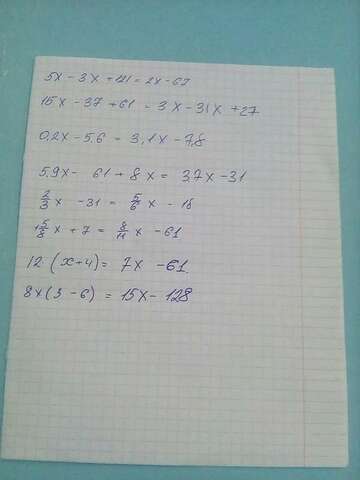 5x - 3x + 121 = 2x - 61
15x - 37 + 61 = 3x - 31x + 27
0,2x - 5.6 = 3,1x - 7,8
5.9x - 61 + 8x = 37x - 31
2/3 x - 31 = 5/6 x - 18
1 5/8 x + 7 = 8/11 x - 61
12 · (x + 4) = 7x - 61
8x (3 - 6) = 15x - 128